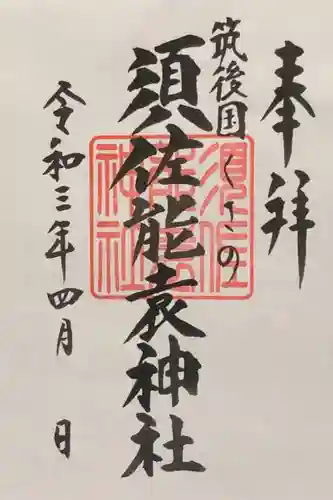 奉拝
筑後国くさの
須佐能袁神社
令和三年四月 日
須佐能袁神社